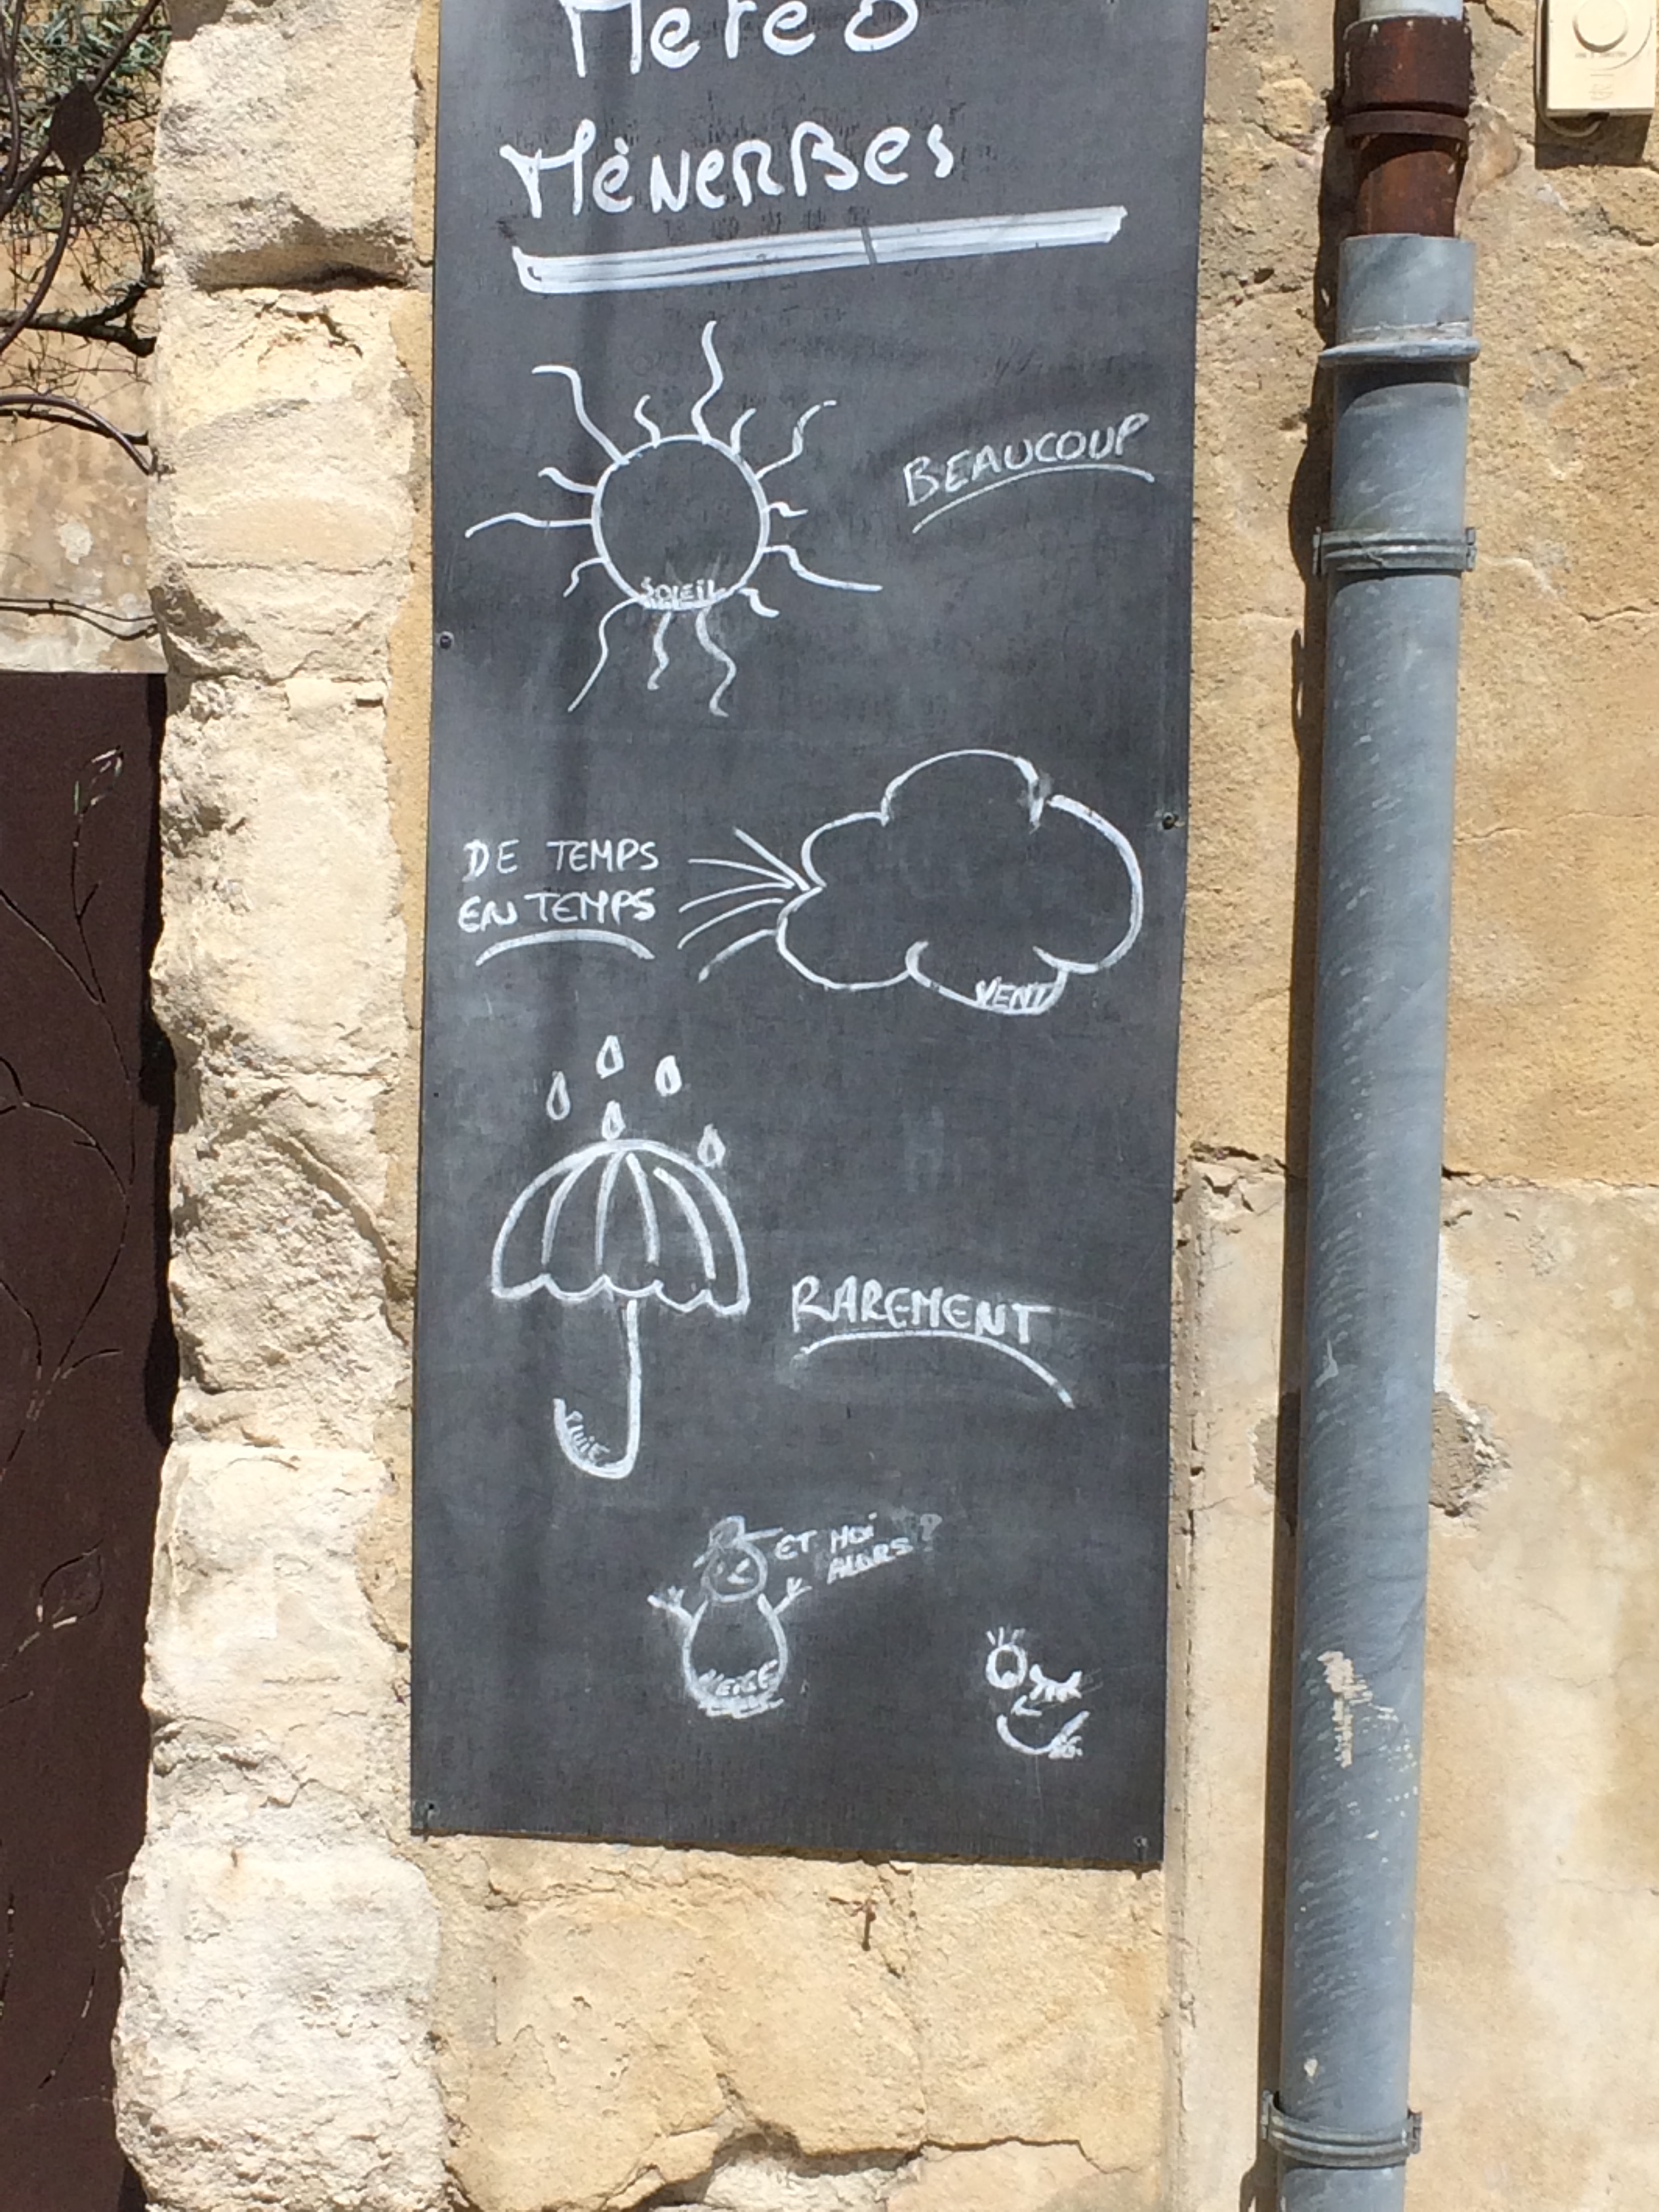 Météo
MÉNERBES
BEAUCOUP
SOLEIL
DE TEMPS
EN TEMPS
VENT
RAREMENT
PLUIE
ET MOI
ALORS ?
NEIGE